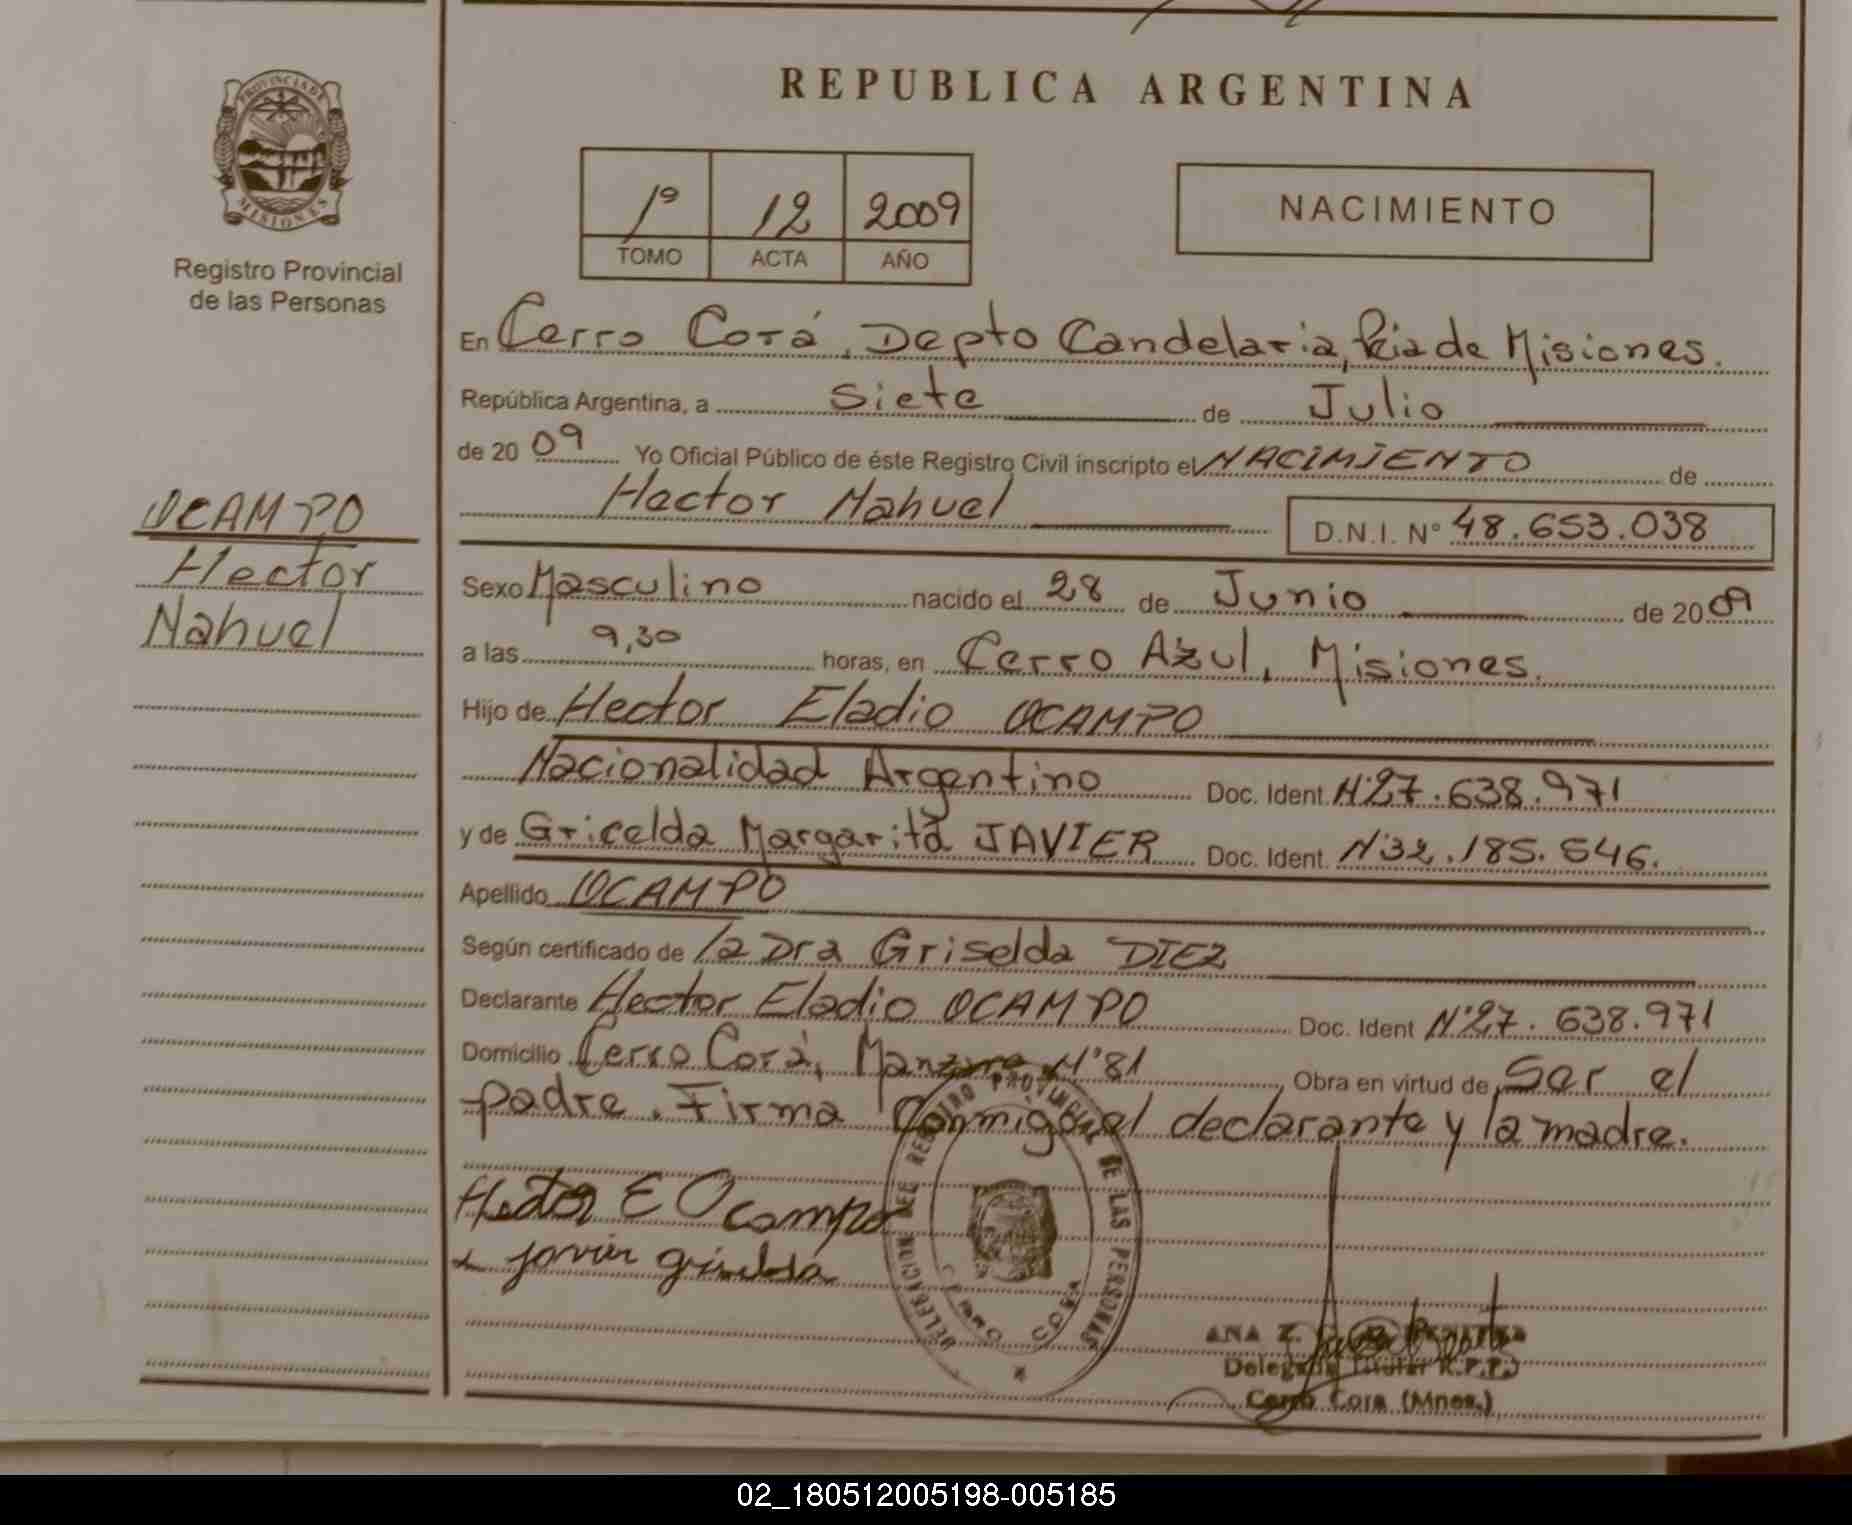 REPUBLICA ARGENTINA
PROVINCIA DE MISIONES
Registro Provincial
de las Personas
1º 12 2009
TOMO ACTA AÑO
NACIMIENTO
En Cerro Corá, Depto Candelaria, Pcia de Misiones.
República Argentina, a siete de Julio
de 20 09 Yo Oficial Público de éste Registro Civil inscripto el NACIMIENTO de
Hector Nahuel D.N.I. Nº 48.653.038
OCAMPO
Hector
Nahuel
Sexo Masculino nacido el 28 de Junio de 20 09
a las 9,30 horas, en Cerro Azul, Misiones.
Hijo de Hector Eladio OCAMPO
Nacionalidad Argentino Doc. Ident. Nº27.638.971
y de Gricelda Margarita JAVIER Doc. Ident. Nº32.185.546.
Apellido OCAMPO
Según certificado de la Dra Griselda DIEZ
Declarante Hector Eladio OCAMPO Doc. Ident Nº27.638.971
Domicilio Cerro Corá, Manzana Nº81 Obra en virtud de Ser el
padre. Firma Conmigo el declarante y la madre.
Hector E Ocampo
Javier
DELEGACION DEL REGISTRO PROVINCIAL DE LAS PERSONAS
CERRO CORA
ANA Z.
Delegada Titular R.P.P.
Cerro Cora (Mnes.)
02_180512005198-005185